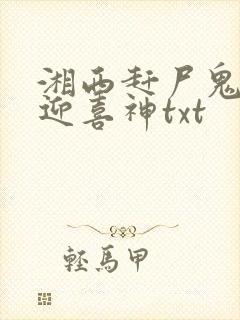 湘西赶尸鬼
迎喜神txt
轻馬甲